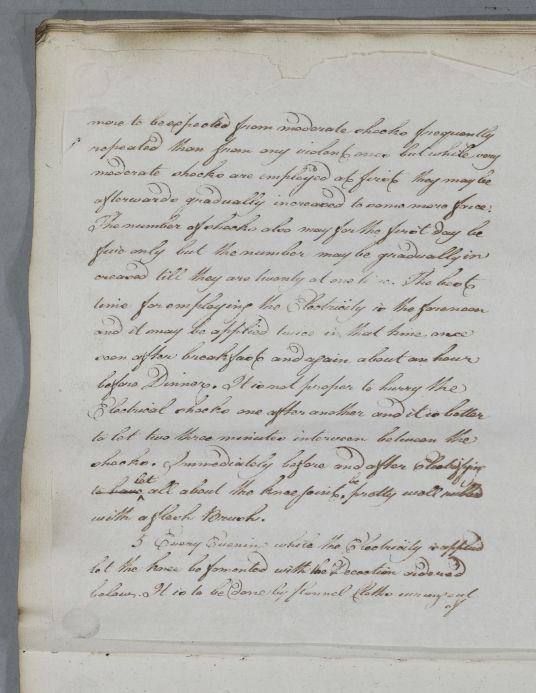 more to be expected from moderate shocks frequently
repeated than from any violent ones but while very
moderate shocks are employed at first they may be
afterwards gradually increased to some more force.
The number of shocks also may for the first day be
five only but the number may be gradually in
creased till they are twenty at one time. The best
time for employing the Electricity is the forenoon
and it may be applied twice in that time once
soon after breakfast and again about an hour
before Dinner. It is not proper to hurry the
Electrical shocks one after another and it is better
to let two three minutes interveen between the
shocks. Immediately before and after Electrifying
to have let all about the knee joint be pretty well rubbed
with a flesh Brush.
5 Every Evening while the Electricity is applied
let the knee be fomented with the Decoction ordered
below. It is to be done by flannel Cloths wrung out
of